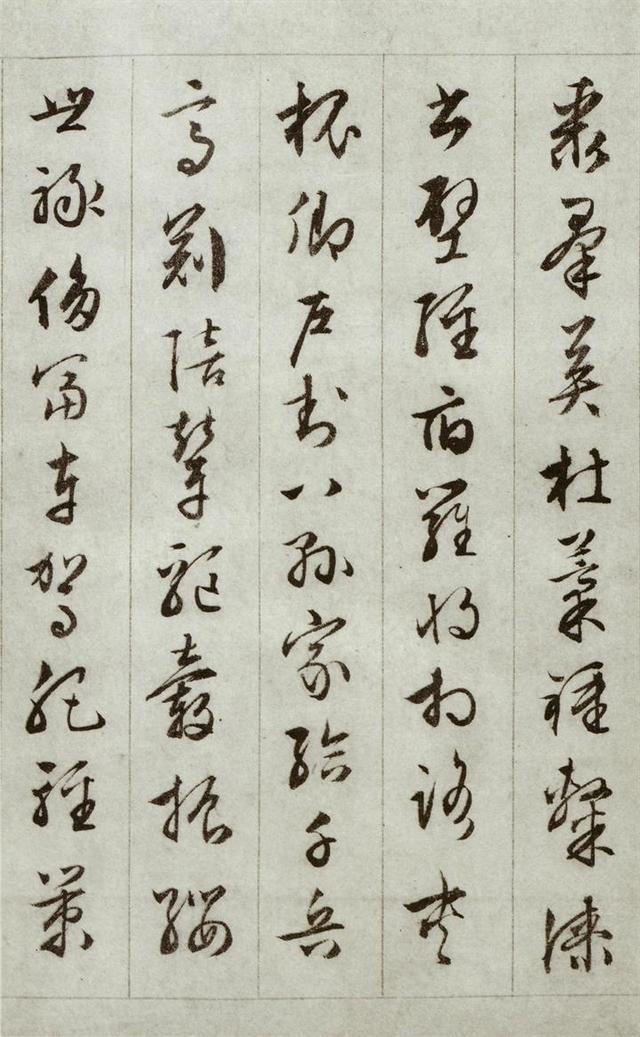 聚羣英杜藁鍾隸漆
書壁經府羅將相路夾
槐卿戶封八縣家給千兵
高冠陪輦驅轂振纓
世祿侈富車駕肥輕策